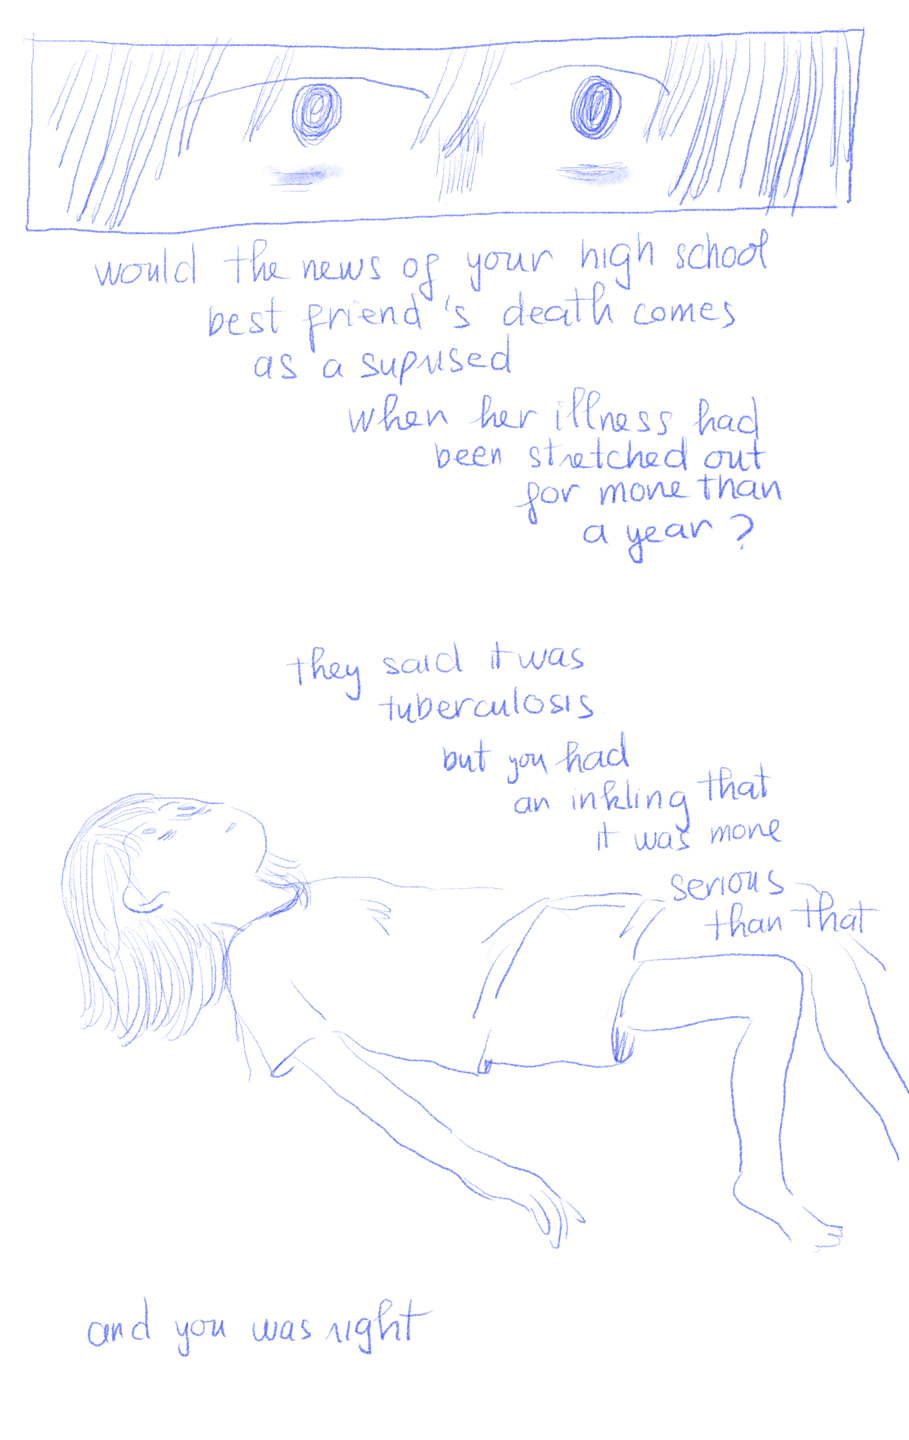 would the news of your high school
best friend's death comes
as a suprised
when her illness had
been stretched out
for more than
a year?
they said it was
tuberculosis
but you had
an inkling that
it was more
serious
than that
and you was right